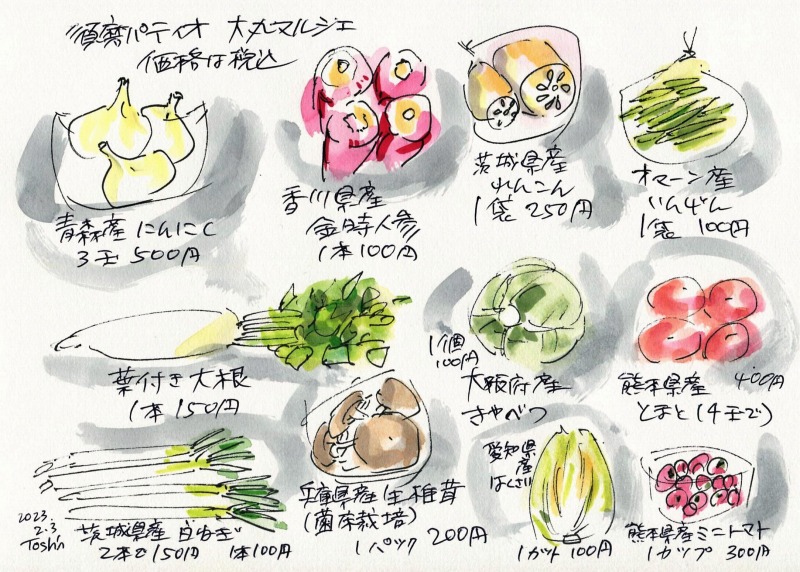 須磨パティオ 大丸マルシェ
価格は税込
青森産 にんにく
3玉 500円
香川県産
金時人参
1本100円
茨城県産
れんこん
1袋 250円
オマーン産
いんげん
1袋 100円
葉付き大根
1本 150円
1個
100円
大阪府産
きゃべつ
熊本県産 400円
とまと(4玉で)
2023.
2.3
Tosh'n
茨城県産 白ねぎ
2本で150円 1本100円
兵庫県産 生椎茸
(菌床栽培)
1パック 200円
愛知県
産
はくさい
1カット 100円
熊本県産ミニトマト
1カップ 300円